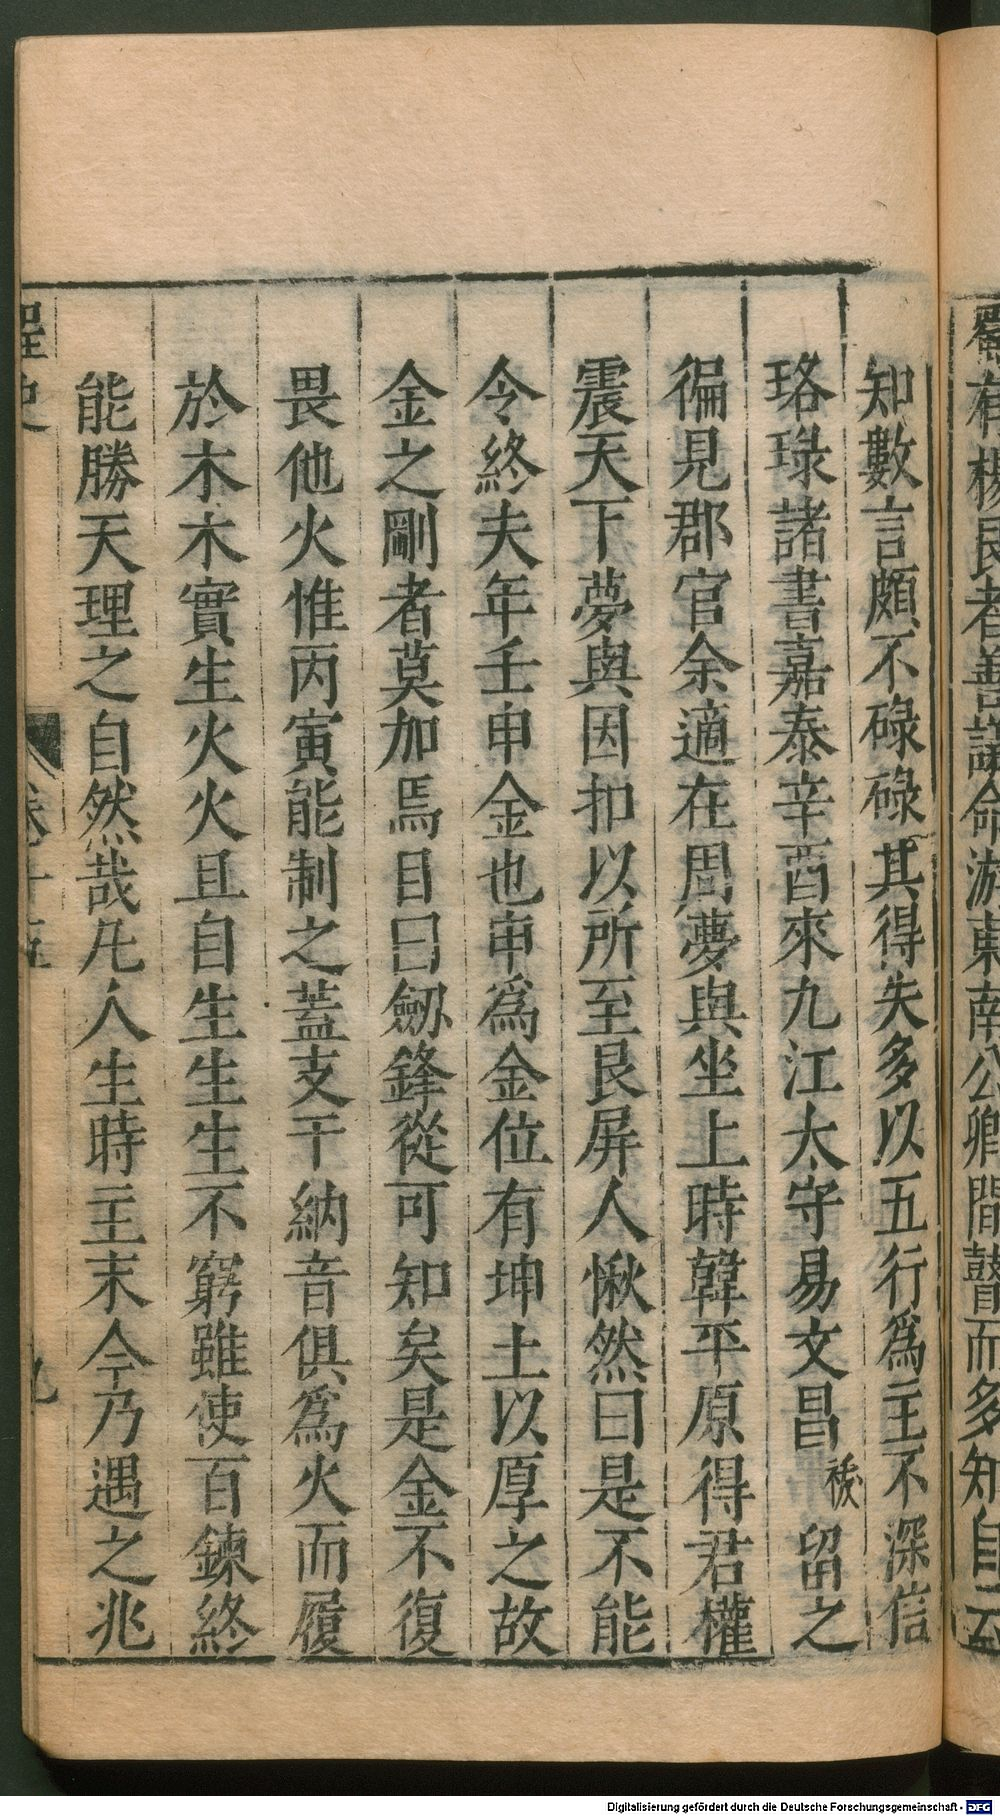 蜀有楊艮者善議命游東南公卿間瞽而多知自云
知數言頗不碌碌其得失多以五行為主不深信
珞琭諸書嘉泰辛酉來九江太守易文昌祓留之
徧見郡官余適在周夢與坐上時韓平原得君權
震天下夢與因扣以所至艮屏人愀然曰是不能
令終夫年壬申金也申為金位有坤土以厚之故
金之剛者莫加焉目曰劒鋒從可知矣是金不復
畏他火惟丙寅能制之蓋支干納音俱為火而履
於木木實生火火且自生生生不窮雖使百鍊終
能勝天理之自然哉凡人生時主末今乃遇之兆
桯史
卷十五
九
Digitalisierung gefördert durch die Deutsche Forschungsgemeinschaft - DFG